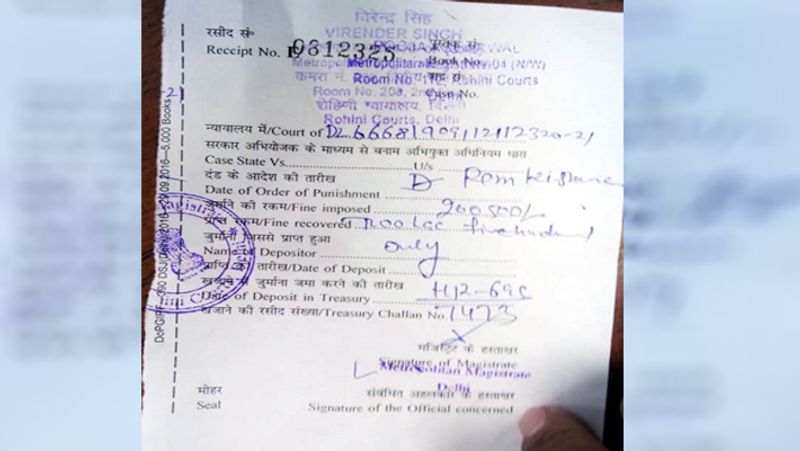 विरेन्द्र सिंह
VIRENDER SINGH
रसीद सं०
Receipt No. 0812325
Book No.
Metropolitan 04 (N/W)
कमरा नं.
Room No. Rohini Courts
Room No. 203, 2nd
Case No.
रोहिणी न्यायालय, दिल्ली
Rohini Courts, Delhi
न्यायालय में/Court of DL66681909112112320-21
सरकार अभियोजक के माध्यम से बनाम अभियुक्त अधिनियम धारा
Case State Vs. U/s
दंड के आदेश की तारीख D Ram
Date of Order of Punishment
जुर्माने की रकम/Fine imposed 200500/-
प्राप्त रकम/Fine recovered Two Lac five hundred
जुर्माना जिससे प्राप्त हुआ only
Name of Depositor
प्राप्ति की तारीख/Date of Deposit
खजाने में जुर्माना जमा करने की तारीख HR-69C
Date of Deposit in Treasury
खजाने की रसीद संख्या/Treasury Challan No. 7473
मजिस्ट्रेट के हस्ताक्षर
Signature of Magistrate
Metropolitan Magistrate
Delhi
मोहर संबंधित अहलकार के हस्ताक्षर
Seal Signature of the Official concerned
DSJ/Delhi/2016—29.09.2016—5,000 Books